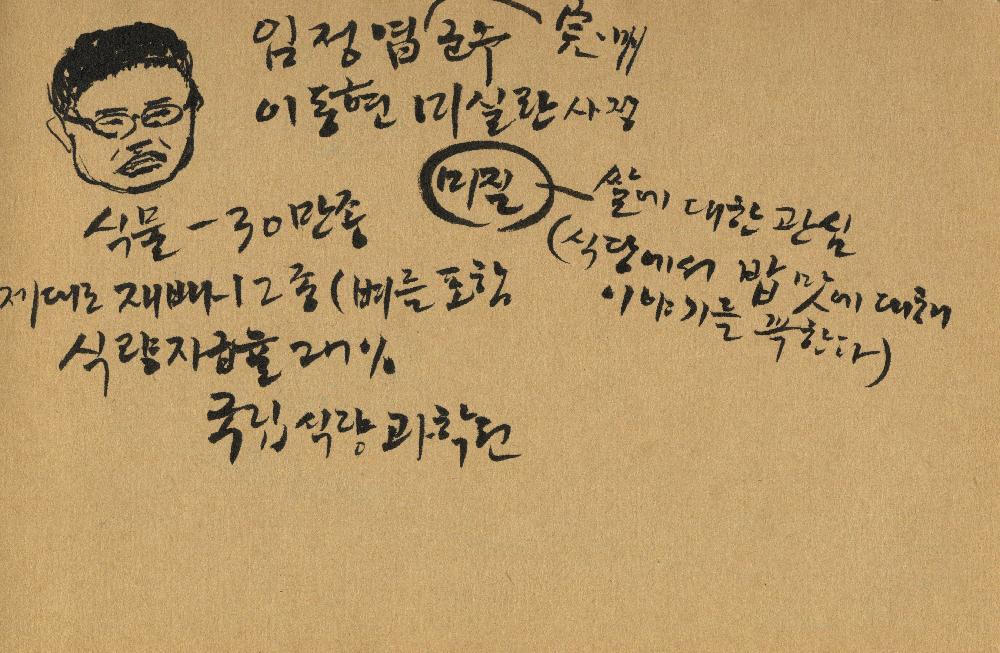 임정엽 군수
이동현 미실란 사장
미질 쌀에 대한 관심
(식당에서 밥맛에 대해
이야기를 꼭 한다)
식물 - 30만종
제대로 재배 12종 (벼를 포함
식량자급율
국립식량과학원